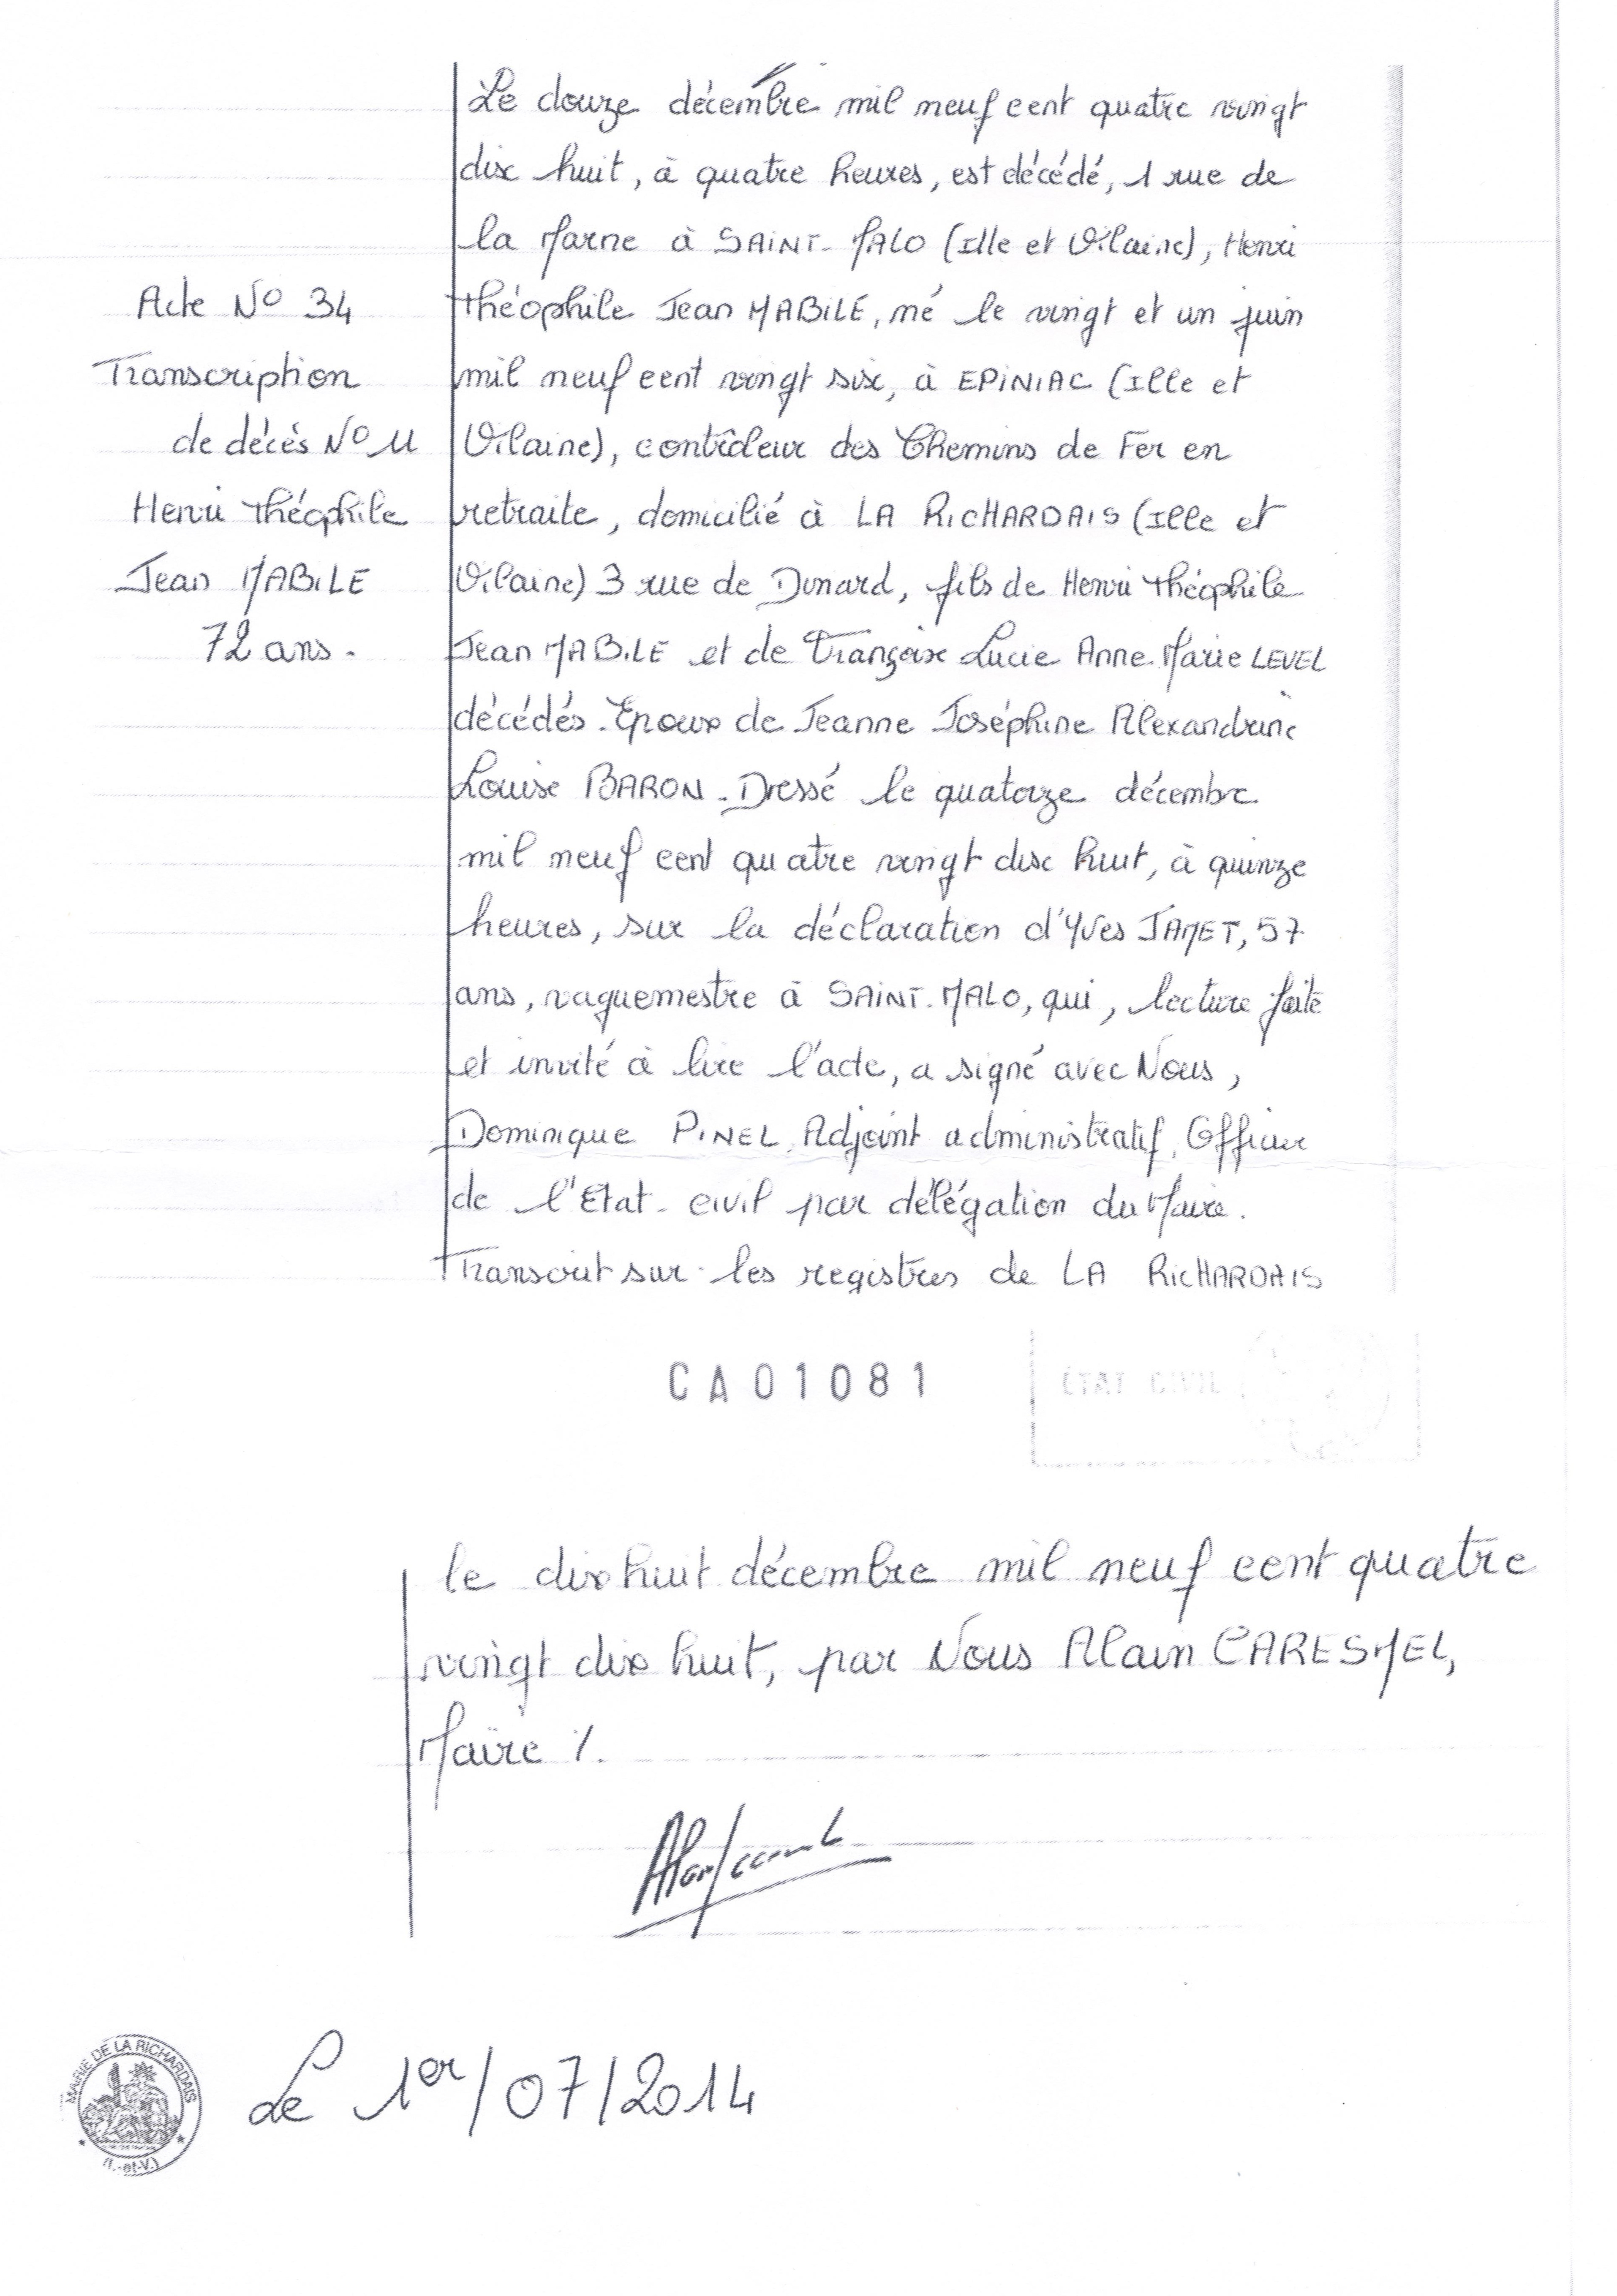 Acte N° 34
Transcription
de décès N° 11
Henri Théophile
Jean MABILE
72 ans.
Le douze décembre mil neuf cent quatre vingt
dix huit, à quatre heures, est décédé, 1 rue de
la Marne à SAINT-MALO (Ille et Vilaine), Henri
Théophile Jean MABILE, né le vingt et un juin
mil neuf cent vingt six, à EPINIAC (Ille et
Vilaine), contrôleur des Chemins de Fer en
retraite, domicilié à LA RICHARDAIS (Ille et
Vilaine) 3 rue de Dinard, fils de Henri Théophile
Jean MABILE et de Françoise Lucie Anne-Marie LEVEL
décédés. Epoux de Jeanne Joséphine Alexandrine
Louise BARON. Dressé le quatorze décembre
mil neuf cent quatre vingt dix huit, à quinze
heures, sur la déclaration d'Yves JAMET, 57
ans, vaguemestre à SAINT-MALO, qui, lecture faite
et invité à lire l'acte, a signé avec Nous,
Dominique PINEL, Adjoint administratif, Officier
de l'Etat-civil par délégation du Maire.
Transcrit sur les registres de LA RICHARDAIS
CA01081
ETAT CIVIL
le dix huit décembre mil neuf cent quatre
vingt dix huit, par Nous Alain CARESMEL,
Maire ./.
MAIRIE DE LA RICHARDAIS
(I.-et-V.)
Le 1er/07/2014